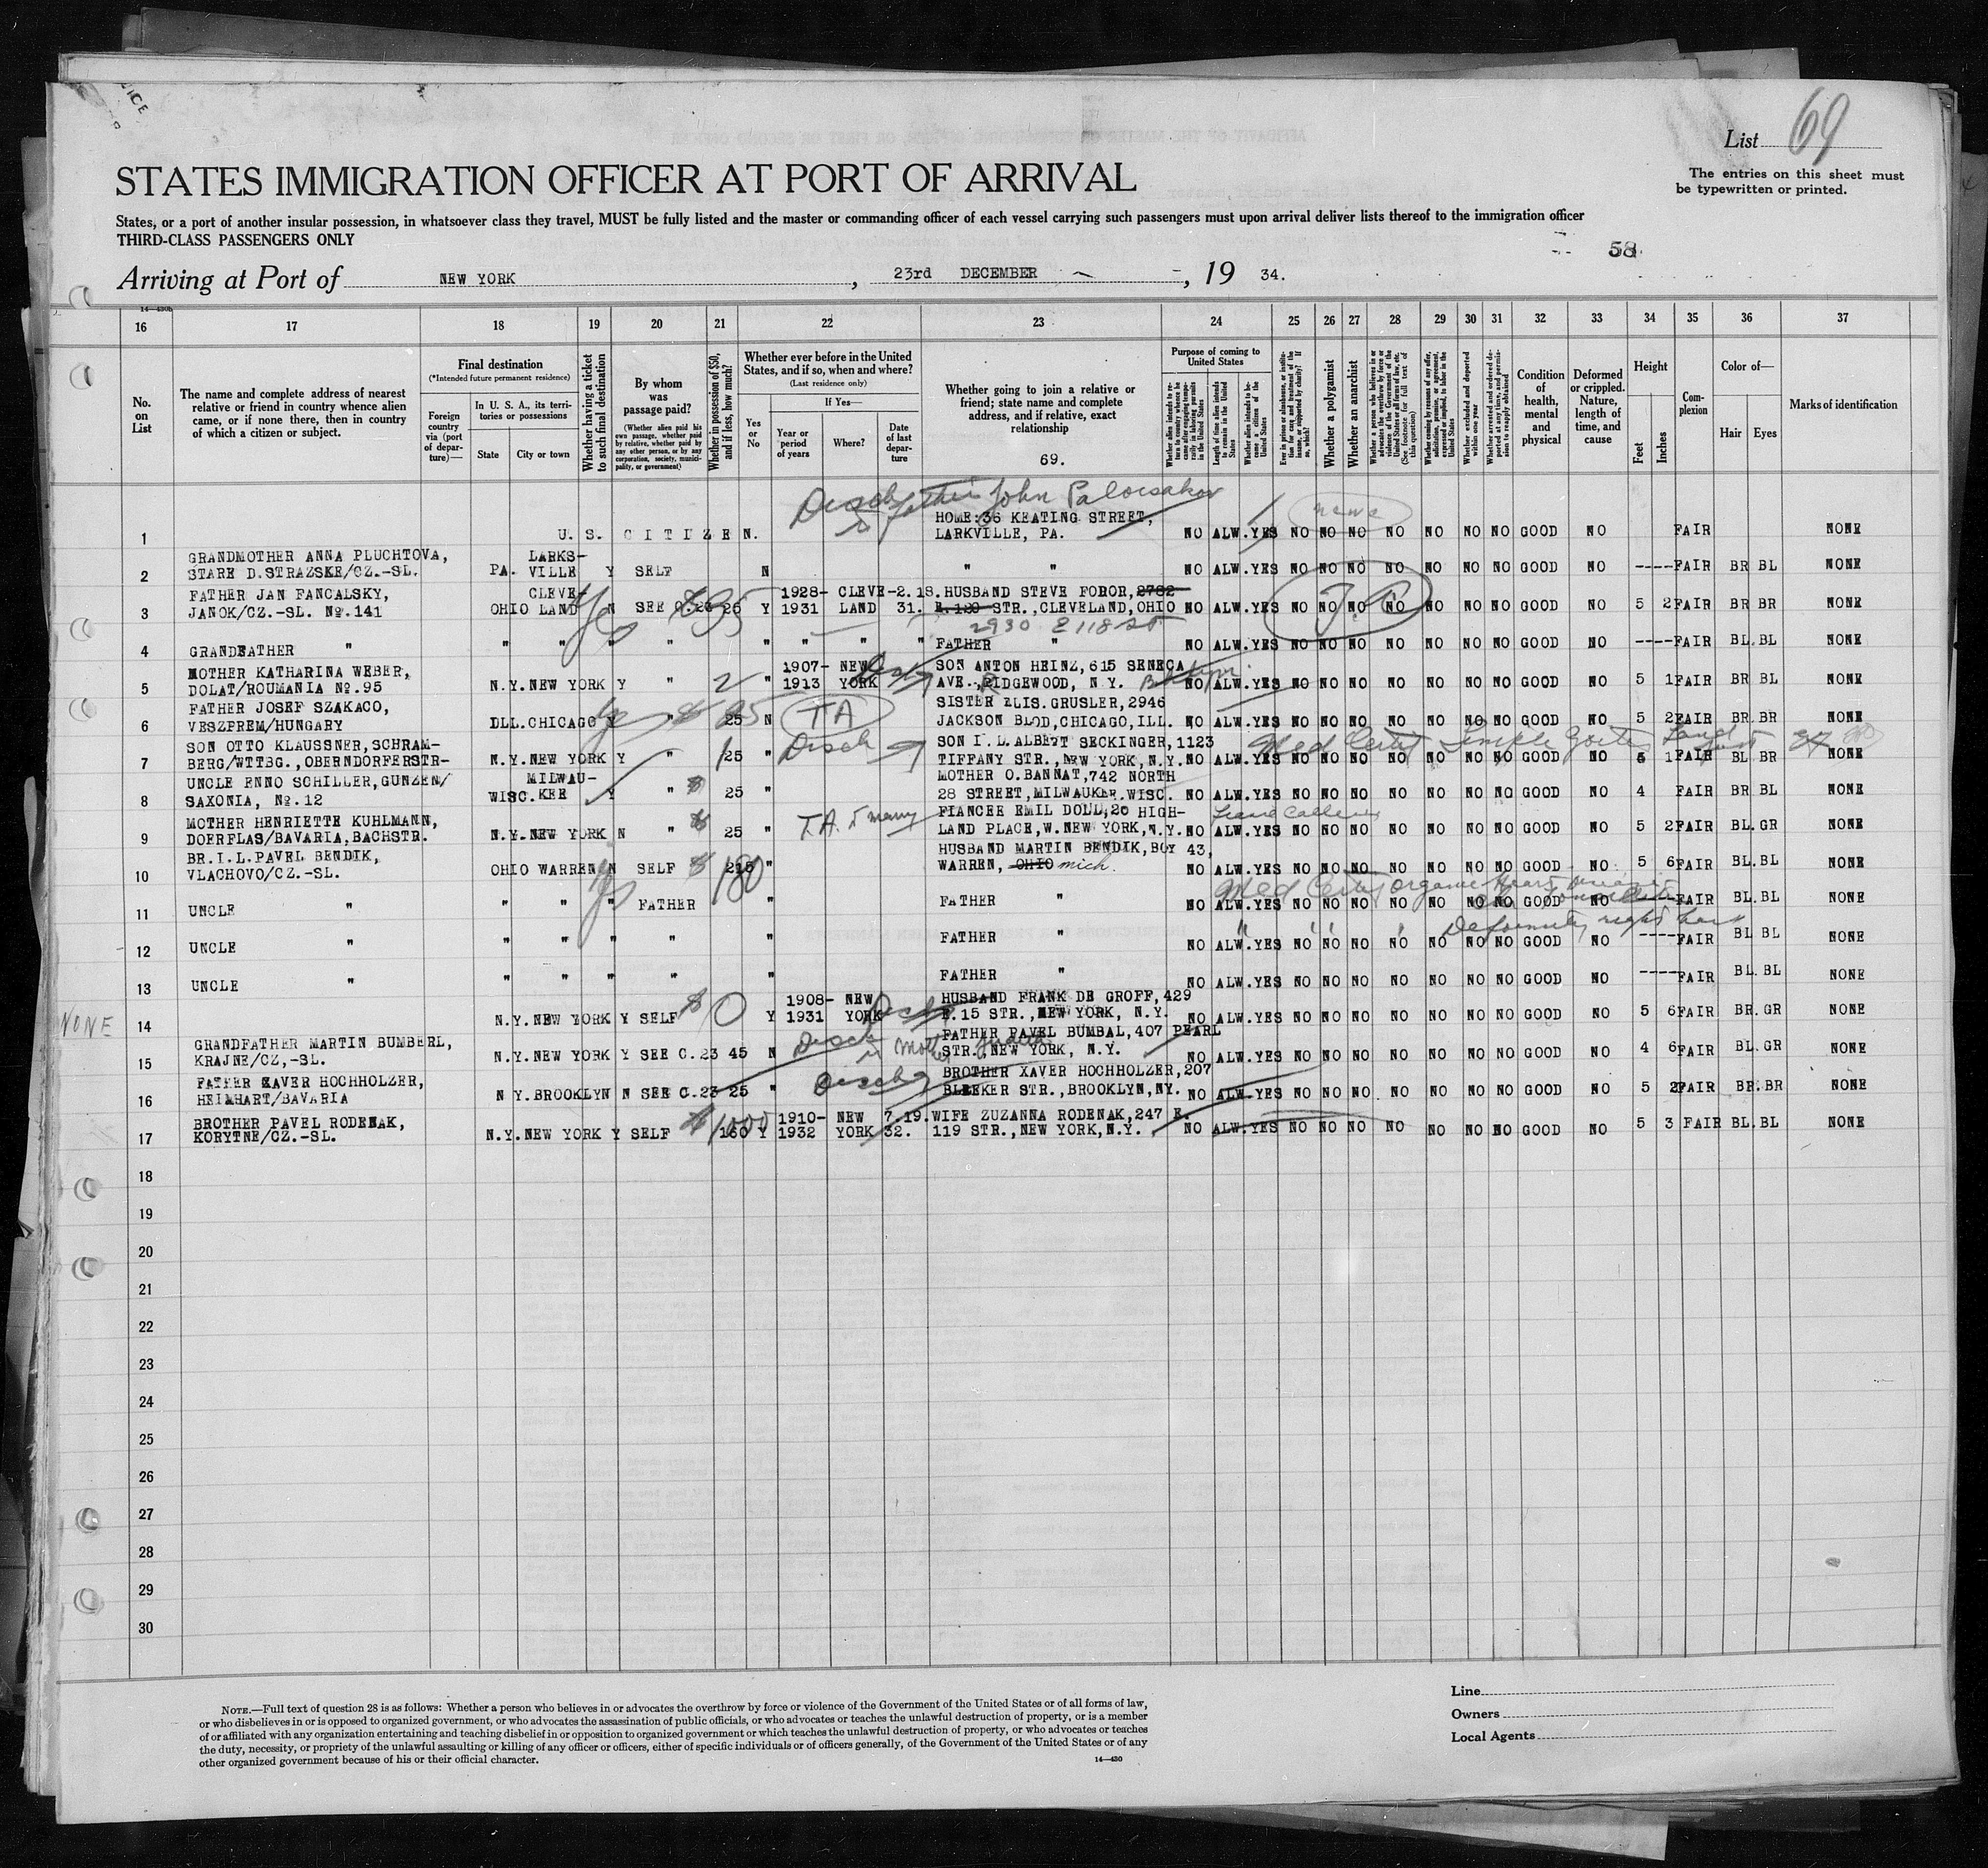 List 69
The entries on this sheet must
be typewritten or printed.
STATES IMMIGRATION OFFICER AT PORT OF ARRIVAL
States, or a port of another insular possession, in whatsoever class they travel, MUST be fully listed and the master or commanding officer of each vessel carrying such passengers must upon arrival deliver lists thereof to the immigration officer
THIRD-CLASS PASSENGERS ONLY
58
Arriving at Port of NEW YORK, 23rd DECEMBER, 19 34.
14—430b
16 17 18 19 20 21 22 23 24 25 26 27 28 29 30 31 32 33 34 35 36 37
No. on List
The name and complete address of nearest
relative or friend in country whence alien
came, or if none there, then in country
of which a citizen or subject.
Final destination
(*Intended future permanent residence)
Foreign country via (port of departure)—
In U. S. A., its territories or possessions
State
City or town
Whether having a ticket to such final destination
By whom was passage paid?
(Whether alien paid his own passage, whether paid by relative, whether paid by any other person, or by any corporation, society, municipality, or government)
Whether in possession of $50, and if less, how much?
Whether ever before in the United States, and if so, when and where?
(Last residence only)
Yes or No
If Yes—
Year or period of years
Where?
Date of last departure
Whether going to join a relative or
friend; state name and complete
address, and if relative, exact
relationship
69.
Purpose of coming to United States
Length of time alien intends to remain in the United States
Whether alien intends to become a citizen of the United States
Whether a polygamist
Whether an anarchist
Whether excluded and deported within one year
Condition of health, mental and physical
Deformed or crippled. Nature, length of time, and cause
Height
Feet
Inches
Complexion
Color of—
Hair
Eyes
Marks of identification
Disch father John
HOME:36 KEATING STREET,
1 U. S. C I T I Z E N. LARKVILLE, PA. NO ALW.YES NO NO NO NO NO NO NO GOOD NO FAIR NONE
GRANDMOTHER ANNA PLUCHTOVA, LARKS-
2 STARE D.STRAZSKE/CZ.-SL. PA. VILLE Y SELF N " " NO ALW.YES NO NO NO NO NO NO NO GOOD NO ----FAIR BR BL NONE
FATHER JAN FANCALSKY, CLEVE- 1928- CLEVE-2.18. HUSBAND STEVE FODOR, 2782
3 JANOK/CZ.-SL. No.141 OHIO LAND N SEE C.23 25 Y 1931 LAND 31. E.120 STR.,CLEVELAND,OHIO NO ALW.YES NO NO NO NO NO NO NO GOOD NO 5 2 FAIR BR BR NONE
2930 E 118 St
4 GRANDFATHER " " " " " " " " " FATHER " NO ALW.YES NO NO NO NO NO NO NO GOOD NO ----FAIR BL.BL NONE
MOTHER KATHARINA WEBER, 1907- NEW SON ANTON HEINZ,615 SENECA
5 DOLAT/ROUMANIA No.95 N.Y.NEW YORK Y " 2 " 1913 YORK AVE.,RIDGEWOOD, N.Y. NO ALW.YES NO NO NO NO NO NO NO GOOD NO 5 1 FAIR BR BL NONE
FATHER JOSEF SZAKACO, SISTER ELIS.GRUSLER,2946
6 VESZPREM/HUNGARY DLL.CHICAGO Y " 25 N TA JACKSON BLOD,CHICAGO,ILL. NO ALW.YES NO NO NO NO NO NO NO GOOD NO 5 2 FAIR BR.BR NONE
SON OTTO KLAUSSNER,SCHRAM- Disch SON I.L.ALBERT SECKINGER,1123 Med Certif Simple Goitre
7 BERG/WTTBG.,OBERNDORFERSTR- N.Y.NEW YORK Y " 25 " TIFFANY STR.,NEW YORK,N.Y. NO ALW.YES NO NO NO NO NO NO NO GOOD NO 5 1 FAIR BL BR NONE
UNCLE ENNO SCHILLER,GUNZEN/ MILWAU- MOTHER O.BANNAT,742 NORTH
8 SAXONIA, No.12 WISC.KEE Y " 25 " 28 STREET,MILWAUKEE.WISC. NO ALW.YES NO NO NO NO NO NO NO GOOD NO 4 FAIR BR.BL NONE
MOTHER HENRIETTE KUHLMANN, T.A. to marry FIANCEE EMIL DOLL,20 HIGH-
9 DOERFLAS/BAVARIA,BACHSTR. N.Y.NEW YORK N " 25 " LAND PLACE,W.NEW YORK,N.Y. NO ALW.YES NO NO NO NO NO NO NO GOOD NO 5 2 FAIR BL.GR NONE
BR.I.L.PAVEL BENDIK, HUSBAND MARTIN BENDIK,BOY 43,
10 VLACHOVO/CZ.-SL. OHIO WARREN N SELF 215 180 " WARREN, OHIO mich. NO ALW.YES NO NO NO NO NO NO NO GOOD NO 5 6 FAIR BL.BL NONE
Med Certif organic Heart Disease
11 UNCLE " " " " FATHER " FATHER " NO ALW.YES NO NO NO NO NO NO NO GOOD NO ----FAIR BL.BL NONE
Deformity right
12 UNCLE " " " " " " FATHER " NO ALW.YES NO NO NO NO NO NO NO GOOD NO ----FAIR BL BL NONE
13 UNCLE " " " " " " FATHER " NO ALW.YES NO NO NO NO NO NO NO GOOD NO ----FAIR BL.BL NONE
1908- NEW HUSBAND FRANK DE GROFF,429
NONE 14 N.Y.NEW YORK Y SELF $0 Y 1931 YORK E.15 STR.,NEW YORK, N.Y. NO ALW.YES NO NO NO NO NO NO NO GOOD NO 5 6 FAIR BR.GR NONE
GRANDFATHER MARTIN BUMBERL, Disch FATHER PAVEL BUMBAL,407 PEARL
15 KRAJNE/CZ,-SL. N.Y.NEW YORK Y SEE C.23 45 N STR.,NEW YORK, N.Y. NO ALW.YES NO NO NO NO NO NO NO GOOD NO 4 6 FAIR BL.GR NONE
FATHER XAVER HOCHHOLZER, Disch BROTHER XAVER HOCHHOLZER,207
16 HEIMHART/BAVARIA N Y.BROOKLYN N SEE C.23 25 " BLEEKER STR.,BROOKLYN,NY. NO ALW.YES NO NO NO NO NO NO NO GOOD NO 5 2 FAIR BR.BR NONE
BROTHER PAVEL RODENAK, $1000 1910- NEW 7.19. WIFE ZUZANNA RODENAK,247 E.
17 KORYTNE/CZ.-SL. N.Y.NEW YORK Y SELF 160 Y 1932 YORK 32. 119 STR.,NEW YORK,N.Y. NO ALW.YES NO NO NO NO NO NO NO GOOD NO 5 3 FAIR BL.BL NONE
18
19
20
21
22
23
24
25
26
27
28
29
30
NOTE.—Full text of question 28 is as follows: Whether a person who believes in or advocates the overthrow by force or violence of the Government of the United States or of all forms of law,
or who disbelieves in or is opposed to organized government, or who advocates the assassination of public officials, or who advocates or teaches the unlawful destruction of property, or is a member
of or affiliated with any organization entertaining and teaching disbelief in or opposition to organized government or which teaches the unlawful destruction of property, or who advocates or teaches
the duty, necessity, or propriety of the unlawful assaulting or killing of any officer or officers, either of specific individuals or of officers generally, of the Government of the United States or of any
other organized government because of his or their official character.
14—430
Line
Owners
Local Agents